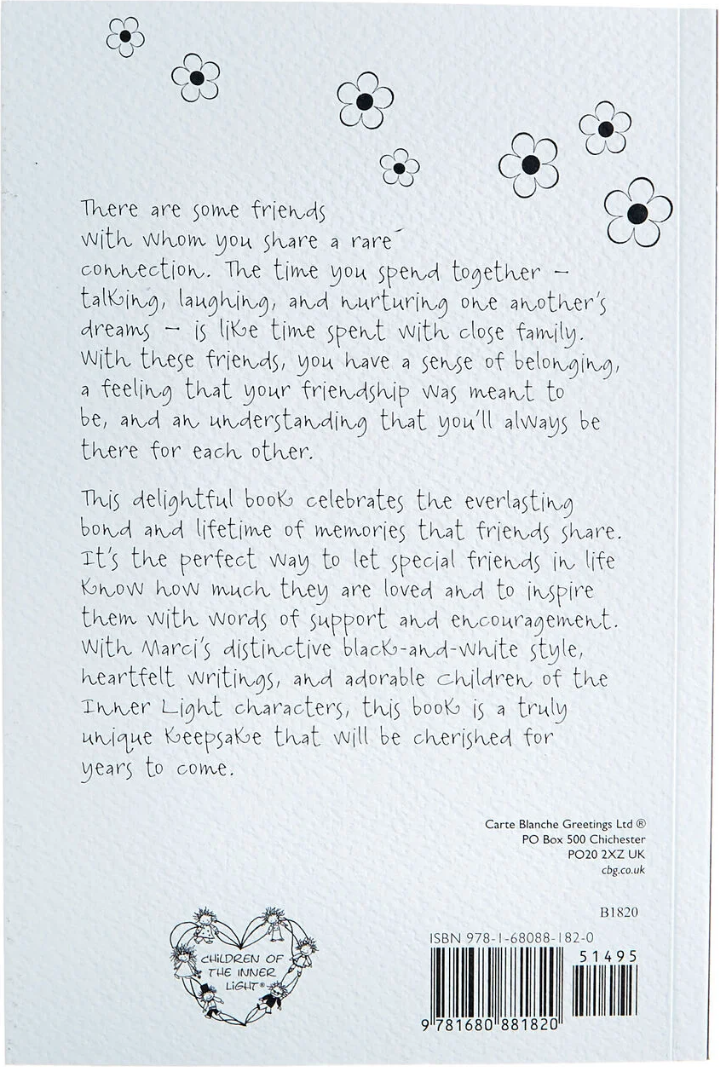 There are some friends
with whom you share a rare
connection. The time you spend together –
talking, laughing, and nurturing one another's
dreams – is like time spent with close family.
With these friends, you have a sense of belonging,
a feeling that your friendship was meant to
be, and an understanding that you'll always be
there for each other.
This delightful book celebrates the everlasting
bond and lifetime of memories that friends share.
It's the perfect way to let special friends in life
know how much they are loved and to inspire
them with words of support and encouragement.
With Marci's distinctive black-and-white style,
heartfelt writings, and adorable Children of the
Inner Light characters, this book is a truly
unique keepsake that will be cherished for
years to come.
Carte Blanche Greetings Ltd ®
PO Box 500 Chichester
PO20 2XZ UK
cbg.co.uk
B1820
ISBN 978-1-68088-182-0
51495
9 781680 881820
CHILDREN OF
THE INNER
LIGHT®